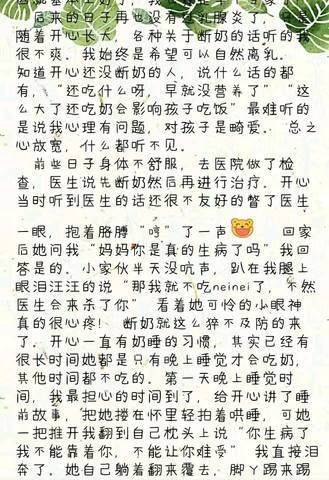 后来的日子再也没有过乳腺炎了，只是
随着开心长大，各种关于断奶的话听的我
很不爽。我始终是希望可以自然离乳。
知道开心还没断奶的人，说什么话的都
有，“还吃什么呀，早就没营养了”“这
么大了还吃奶会影响孩子吃饭”最难听的
是说我心理有问题，对孩子是畸爱。总之
心放宽，什么都听不见。
前些日子身体不舒服，去医院做了检
查，医生说先断奶然后再进行治疗。开心
当时听到医生的话还很不友好的瞥了医生
一眼，抱着胳膊“哼”了一声 回家
后她问我“妈妈你是真的生病了吗”我回
答是的。小家伙半天没吭声，趴在我腿上
眼泪汪汪的说“那我就不吃neinei了，不然
医生会来杀了你”看着她可怜的小眼神
真的很心疼！断奶就这么猝不及防的来
了。开心一直有奶睡的习惯，其实已经有
很长时间她都是只有晚上睡觉才会吃奶，
其他时间都不吃的。第一天晚上睡觉时
间，我最担心的时间到了，给开心讲了睡
前故事，把她搂在怀里轻拍着哄睡，可她
一把推开我翻到自己枕头上说“你生病了
我不能靠着你，不能让你难受”我直接泪
奔了。她自己躺着翻来覆去，脚丫踢来踢